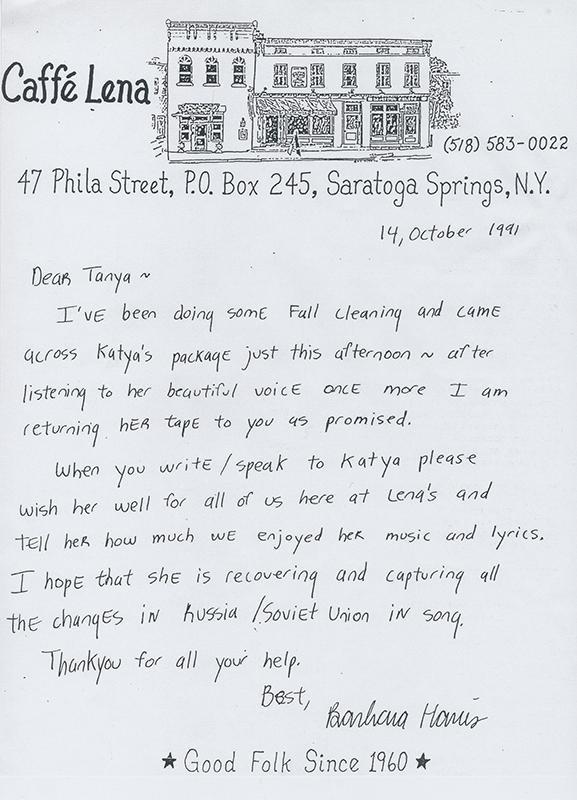 Caffé Lena
(518) 583-0022
47 Phila Street, P.O. Box 245, Saratoga Springs, N.Y.
14, October 1991
Dear Tanya ~
I've been doing some Fall cleaning and came
across Katya's package just this afternoon ~ after
listening to her beautiful voice once more I am
returning her tape to you as promised.
When you write/speak to Katya please
wish her well for all of us here at Lena's and
tell her how much we enjoyed her music and lyrics.
I hope that she is recovering and capturing all
the changes in Russia/Soviet Union in song.
Thankyou for all your help.
Best,
Barbara Harris
★ Good Folk Since 1960 ★